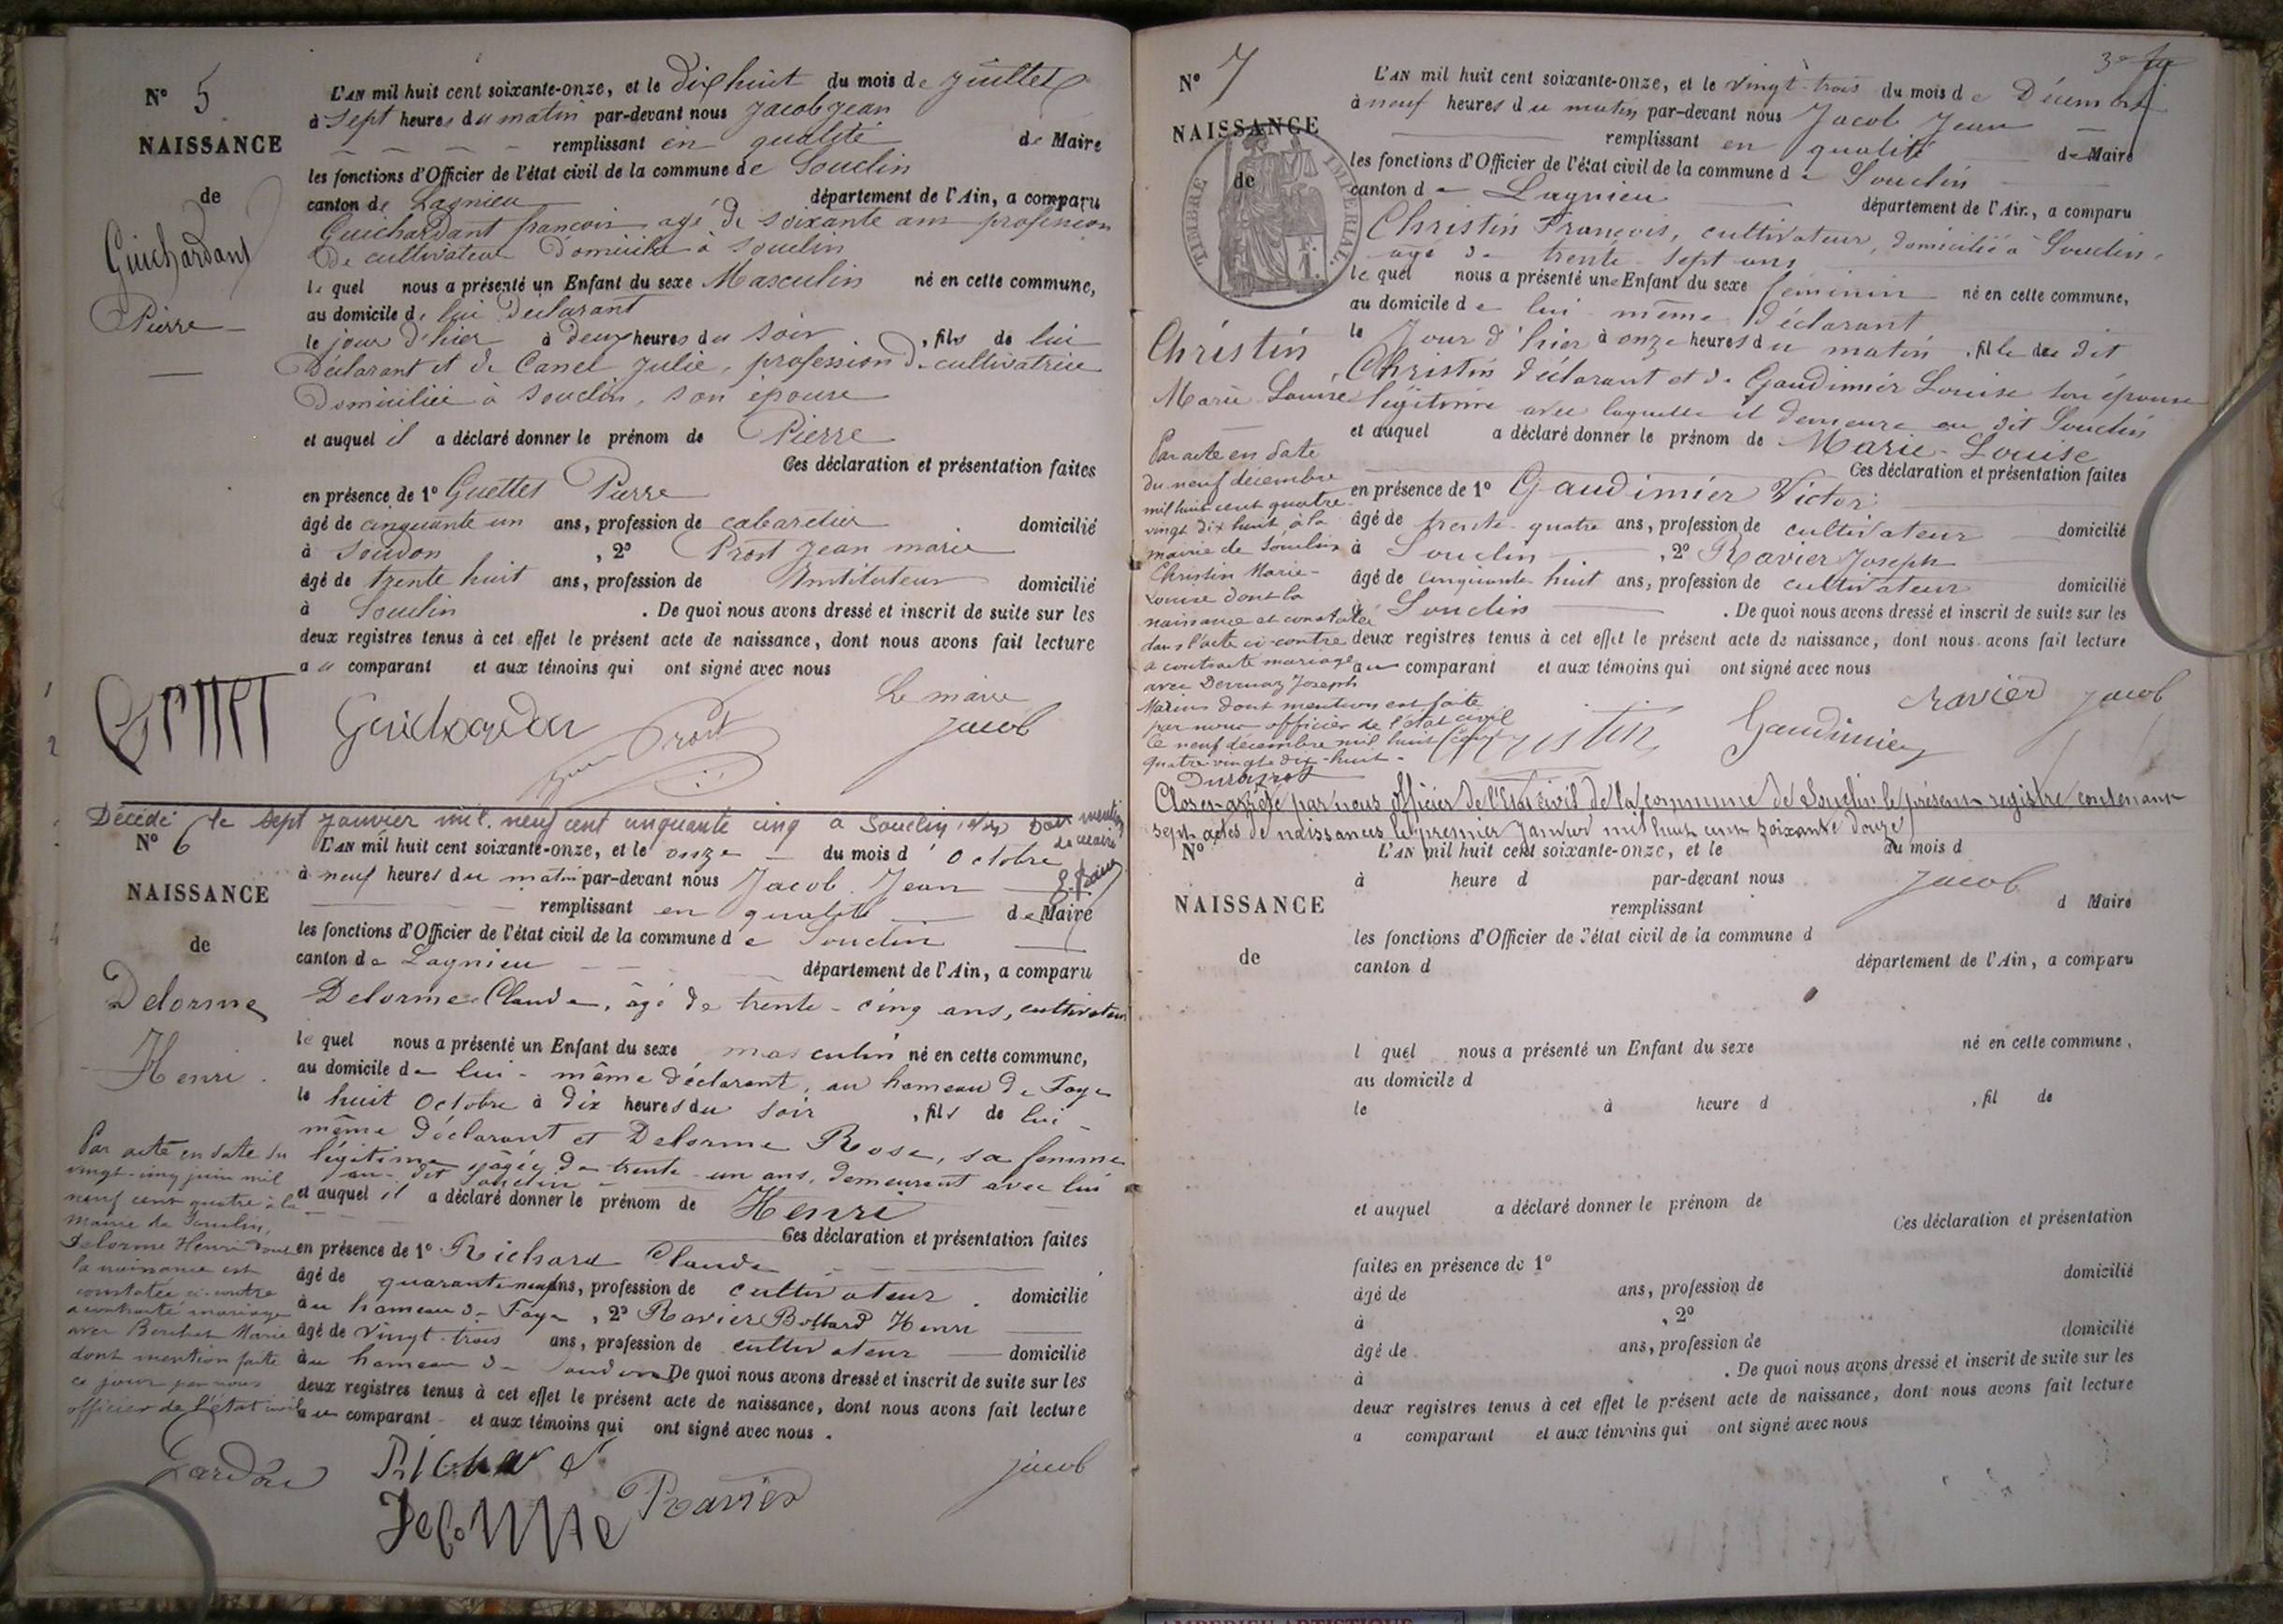 N° 5
NAISSANCE
de
Guichardant
Pierre
L'AN mil huit cent soixante-onze, et le dix huit du mois de juillet
à sept heures du matin par-devant nous Jacob jean
remplissant en qualité de Maire
les fonctions d'Officier de l'état civil de la commune de Souclin
canton de Lagnieu département de l'Ain, a comparu
Guichardant françois agé de soixante ans profession
de cultivateur domicilié à Souclin
le quel nous a présenté un Enfant du sexe Masculin né en cette commune,
au domicile de lui Déclarant
le jour d'hier à deux heures du soir, fils de lui
Déclarant et de Canet Julie, profession de cultivatrice
Domiciliée à Souclin, son épouse
et auquel il a déclaré donner le prénom de Pierre
Ces déclaration et présentation faites
en présence de 1° Guettet Pierre
âgé de cinquante un ans, profession de cabaretier domicilié
à Soudon, 2° Prost Jean marie
âgé de trente huit ans, profession de Instituteur domicilié
à Souclin. De quoi nous avons dressé et inscrit de suite sur les
deux registres tenus à cet effet le présent acte de naissance, dont nous avons fait lecture
au comparant et aux témoins qui ont signé avec nous
Le maire
Guichardan Prost Jacob
Décédé le sept janvier mil neuf cent cinquante cinq a Souclin (Ain) Dont mention
N° 6
NAISSANCE
de
Delorme
Henri
L'AN mil huit cent soixante-onze, et le onze du mois d'Octobre
à neuf heures du matin par-devant nous Jacob Jean
remplissant en qualité de Maire
les fonctions d'Officier de l'état civil de la commune de Souclin
canton de Lagnieu département de l'Ain, a comparu
Delorme Claude, âgé de trente-cinq ans, cultivateur
le quel nous a présenté un Enfant du sexe masculin né en cette commune,
au domicile de lui-même déclarant, au hameau de Fay
le huit Octobre à dix heures du soir, fils de lui-
même déclarant et Delorme Rose, sa femme
légitime, âgée de trente-un ans, demeurant avec lui
au dit Souclin
et auquel il a déclaré donner le prénom de Henri
Ces déclaration et présentation faites
en présence de 1° Richard Claude
âgé de quarante neuf ans, profession de cultivateur domicilié
au hameau de Fay, 2° Ravier Bollard Henri
âgé de vingt-trois ans, profession de cultivateur domicilié
au hameau de Soudon De quoi nous avons dressé et inscrit de suite sur les
deux registres tenus à cet effet le présent acte de naissance, dont nous avons fait lecture
au comparant et aux témoins qui ont signé avec nous.
Par acte en date du
vingt-cinq juin mil
neuf cent quatre à la
mairie de Souclin,
Delorme Henri dont
la naissance est
constatée ci-contre
a contracté mariage
avec Berchet Marie
dont mention faite
ce jour par nous
officier de l'état civil
Richard Jacob
Delorme Ravier
N° 7
NAISSANCE
de
TIMBRE IMPERIAL.
Christin
Marie-Louise
L'AN mil huit cent soixante-onze, et le vingt-trois du mois de Décembre
à neuf heures du matin par-devant nous Jacob Jean
remplissant en qualité de Maire
les fonctions d'Officier de l'état civil de la commune de Souclin
canton de Lagnieu département de l'Ain, a comparu
Christin François, cultivateur, domicilié à Souclin,
âgé de trente-sept ans
le quel nous a présenté une Enfant du sexe féminin né en cette commune,
au domicile de lui-même déclarant
le Jour d'hier à onze heures du matin, fille du dit
Christin déclarant et de Gaudimier Louise son épouse
légitime avec laquelle il demeure au dit Souclin
et auquel a déclaré donner le prénom de Marie-Louise
Ces déclaration et présentation faites
en présence de 1° Gaudimier Victor
âgé de trente-quatre ans, profession de cultivateur domicilié
à Souclin, 2° Ravier Joseph
âgé de cinquante-huit ans, profession de cultivateur domicilié
à Souclin. De quoi nous avons dressé et inscrit de suite sur les
deux registres tenus à cet effet le présent acte de naissance, dont nous avons fait lecture
au comparant et aux témoins qui ont signé avec nous
Par acte en date
du neuf décembre
mil huit cent quatre-
vingt dix huit à la
mairie de Souclin
Christin Marie-
Louise dont la
naissance est constatée
dans l'acte ci-contre
a contracté mariage
avec Dervuaz Joseph
Marius dont mention est faite
par nous officier de l'état civil
le neuf décembre mil huit cent
quatre vingt dix-huit.
Christin Gaudimier Ravier Jacob
Clos et arrêté par nous officier de l'Etat civil de la commune de Souclin le présent registre contenant
sept actes de naissances le premier Janvier mil huit cent soixante douze
Jacob
N°
NAISSANCE
de
L'AN mil huit cent soixante-onze, et le du mois d
à heure d par-devant nous
remplissant d Maire
les fonctions d'Officier de l'état civil de la commune d
canton d département de l'Ain, a comparu
l quel nous a présenté un Enfant du sexe né en cette commune,
au domicile d
le à heure d, fil de
et auquel a déclaré donner le prénom de
Ces déclaration et présentation
faites en présence de 1°
âgé de ans, profession de domicilié
à, 2°
âgé de ans, profession de domicilié
à. De quoi nous avons dressé et inscrit de suite sur les
deux registres tenus à cet effet le présent acte de naissance, dont nous avons fait lecture
a comparant et aux témoins qui ont signé avec nous